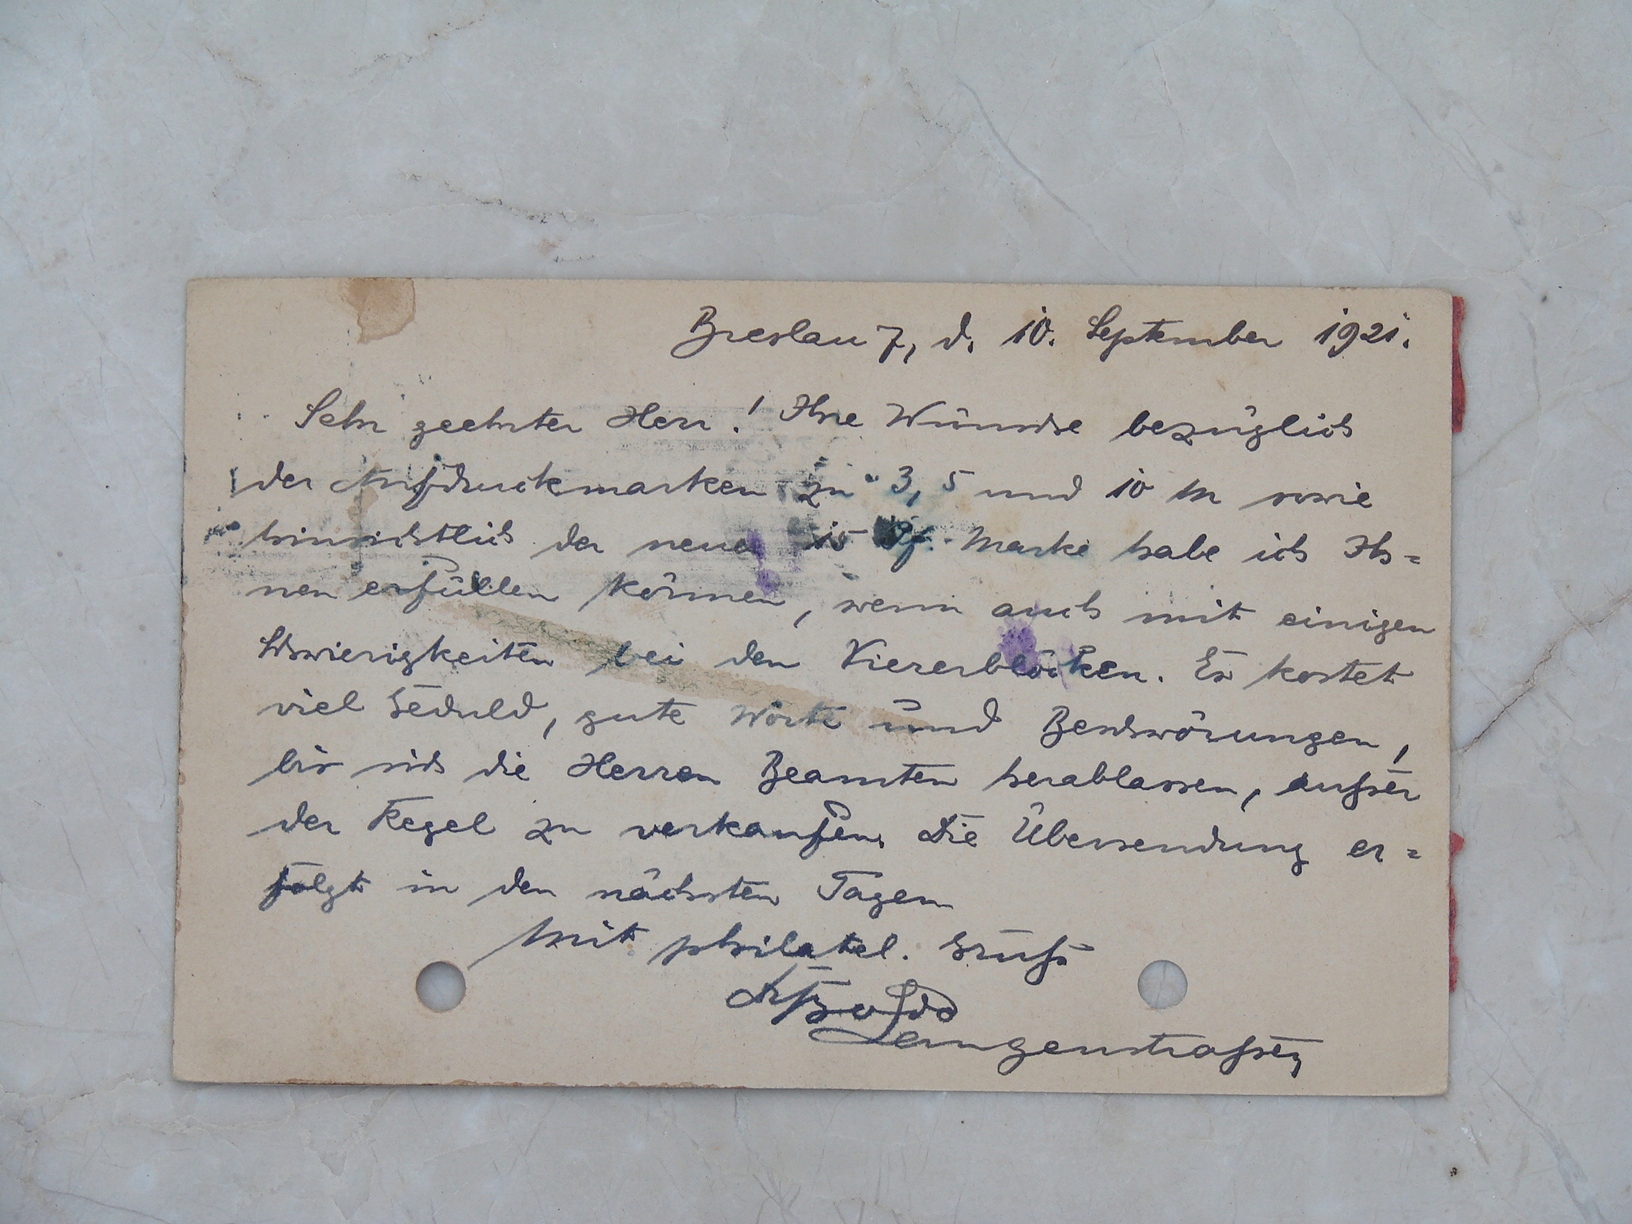 Breslau 7, d. 10. September 1921.
Sehr geehrter Herr! Ihre Wünsche bezüglich
der Aufdruckmarken zu 3, 5 und 10 M sowie
hinsichtlich der neuen Pf. Marke habe ich Ih=
nen erfüllen können, wenn auch mit einigen
Schwierigkeiten bei den Viererblöcken. Es kostet
viel Geduld, gute Worte und Beschwörungen,
bis sich die Herren Beamten herablassen, außer
der Regel zu verkaufen. Die Übersendung er=
folgt in den nächsten Tagen
Mit philatel. Gruß